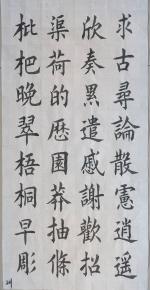 求古尋論散慮逍遥
欣奏累遣慼謝歡招
渠荷的歷園莽抽條
枇杷晚翠梧桐早彫